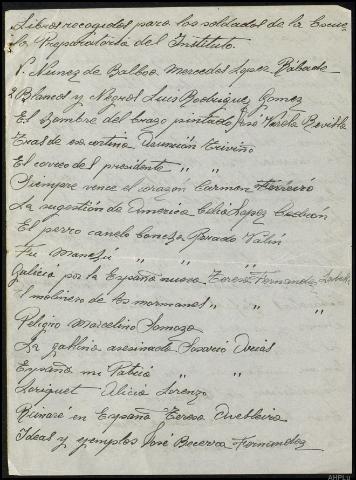 Libros recogidos para los soldados de la Escue-
la Preparatoria del Instituto.
V. Nuñez de Balboa Mercedes Lopez Rábade
2 Blancos y Negros Luis Rodriguez Gomez
El hombre del brazo pintado José Varela
Tras de esa cortina Asunción Triviño
El correo del presidente " "
Siempre vence el corazón Carmen Ferreiro
La sugestión de America Celia Lopez
El perro canelo Rosado
Fu Manchú " " "
Galicia por la España nueva Teresa Fernandez
El molinero de los mormones " "
Peligro Marcelino Somoza
La gallina asesinada Rosario
España mi Patria " "
Loriquet Alicia Lorenzo
Reinaré en España Teresa
Ideas y ejemplos José Becerra Fernandez
AHPLu